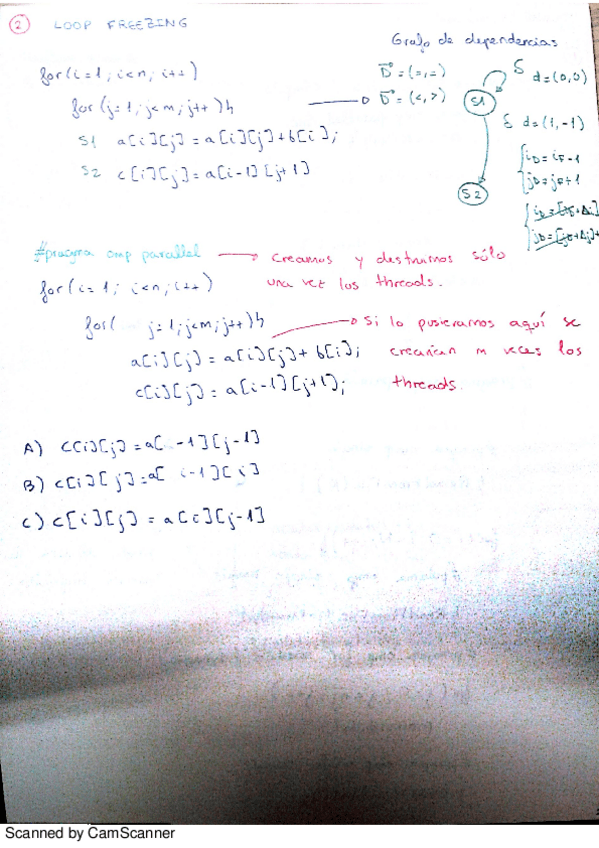 2 LOOP FREEZING
Grafo de dependencias
for(i=1; i<n; i++)
for(j=1; j<m; j++){
S1 a[i][j] = a[i][j]+b[i];
S2 c[i][j] = a[i-1][j+1]
D = (=,=)
D = (<,>)
S1
δ d=(0,0)
δ d=(1,-1)
S2
iD = iF-1
jD = jF+1
#pragma omp parallel → creamos y destruimos sólo
una vez los threads.
for(i=1; i<n; i++)
for( j=1; j<m; j++){ → si lo pusieramos aquí se
a[i][j] = a[i][j]+b[i]; crearían m veces los
c[i][j] = a[i-1][j+1]; threads.
A) c[i][j] = a[ -1][j-1]
B) c[i][j] = a[ i-1][j]
C) c[i][j] = a[i][j-1]
Scanned by CamScanner